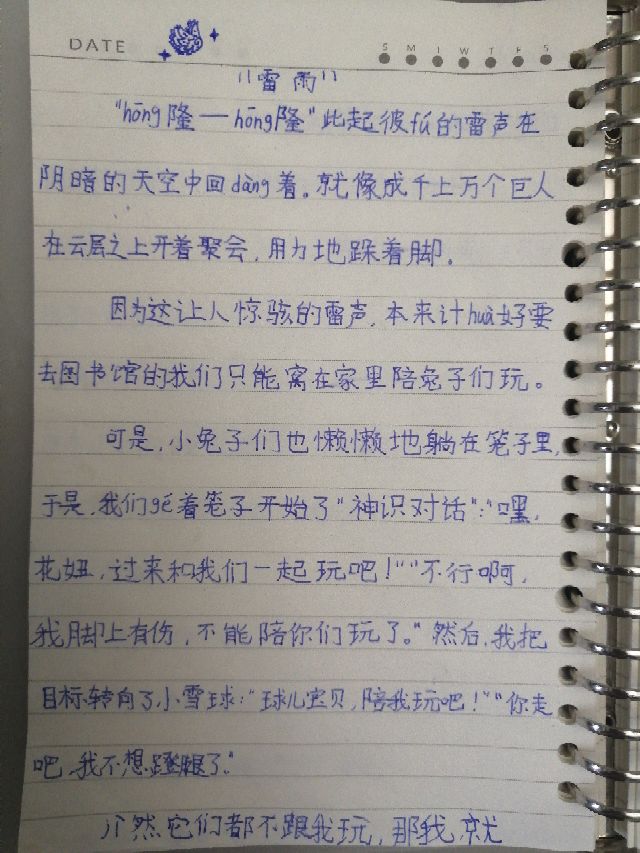 DATE
S M T W T F S
"雷雨"
"hōng隆一hōng隆"此起彼fú的雷声在
阴暗的天空中回dàng着。就像成千上万个巨人
在云层之上开着聚会，用力地跺着脚。
因为这让人惊骇的雷声，本来计huà好要
去图书馆的我们只能窝在家里陪兔子们玩。
可是，小兔子们也懒懒地躺在笼子里，
于是，我们gé着笼子开始了"神识对话"："嘿，
花妞，过来和我们一起玩吧！""不行啊，
我脚上有伤，不能陪你们玩了。"然后，我把
目标转向了小雪球："球儿宝贝，陪我玩吧！""你走
吧，我不想蹬腿了。"
然它们都不跟我玩，那我就